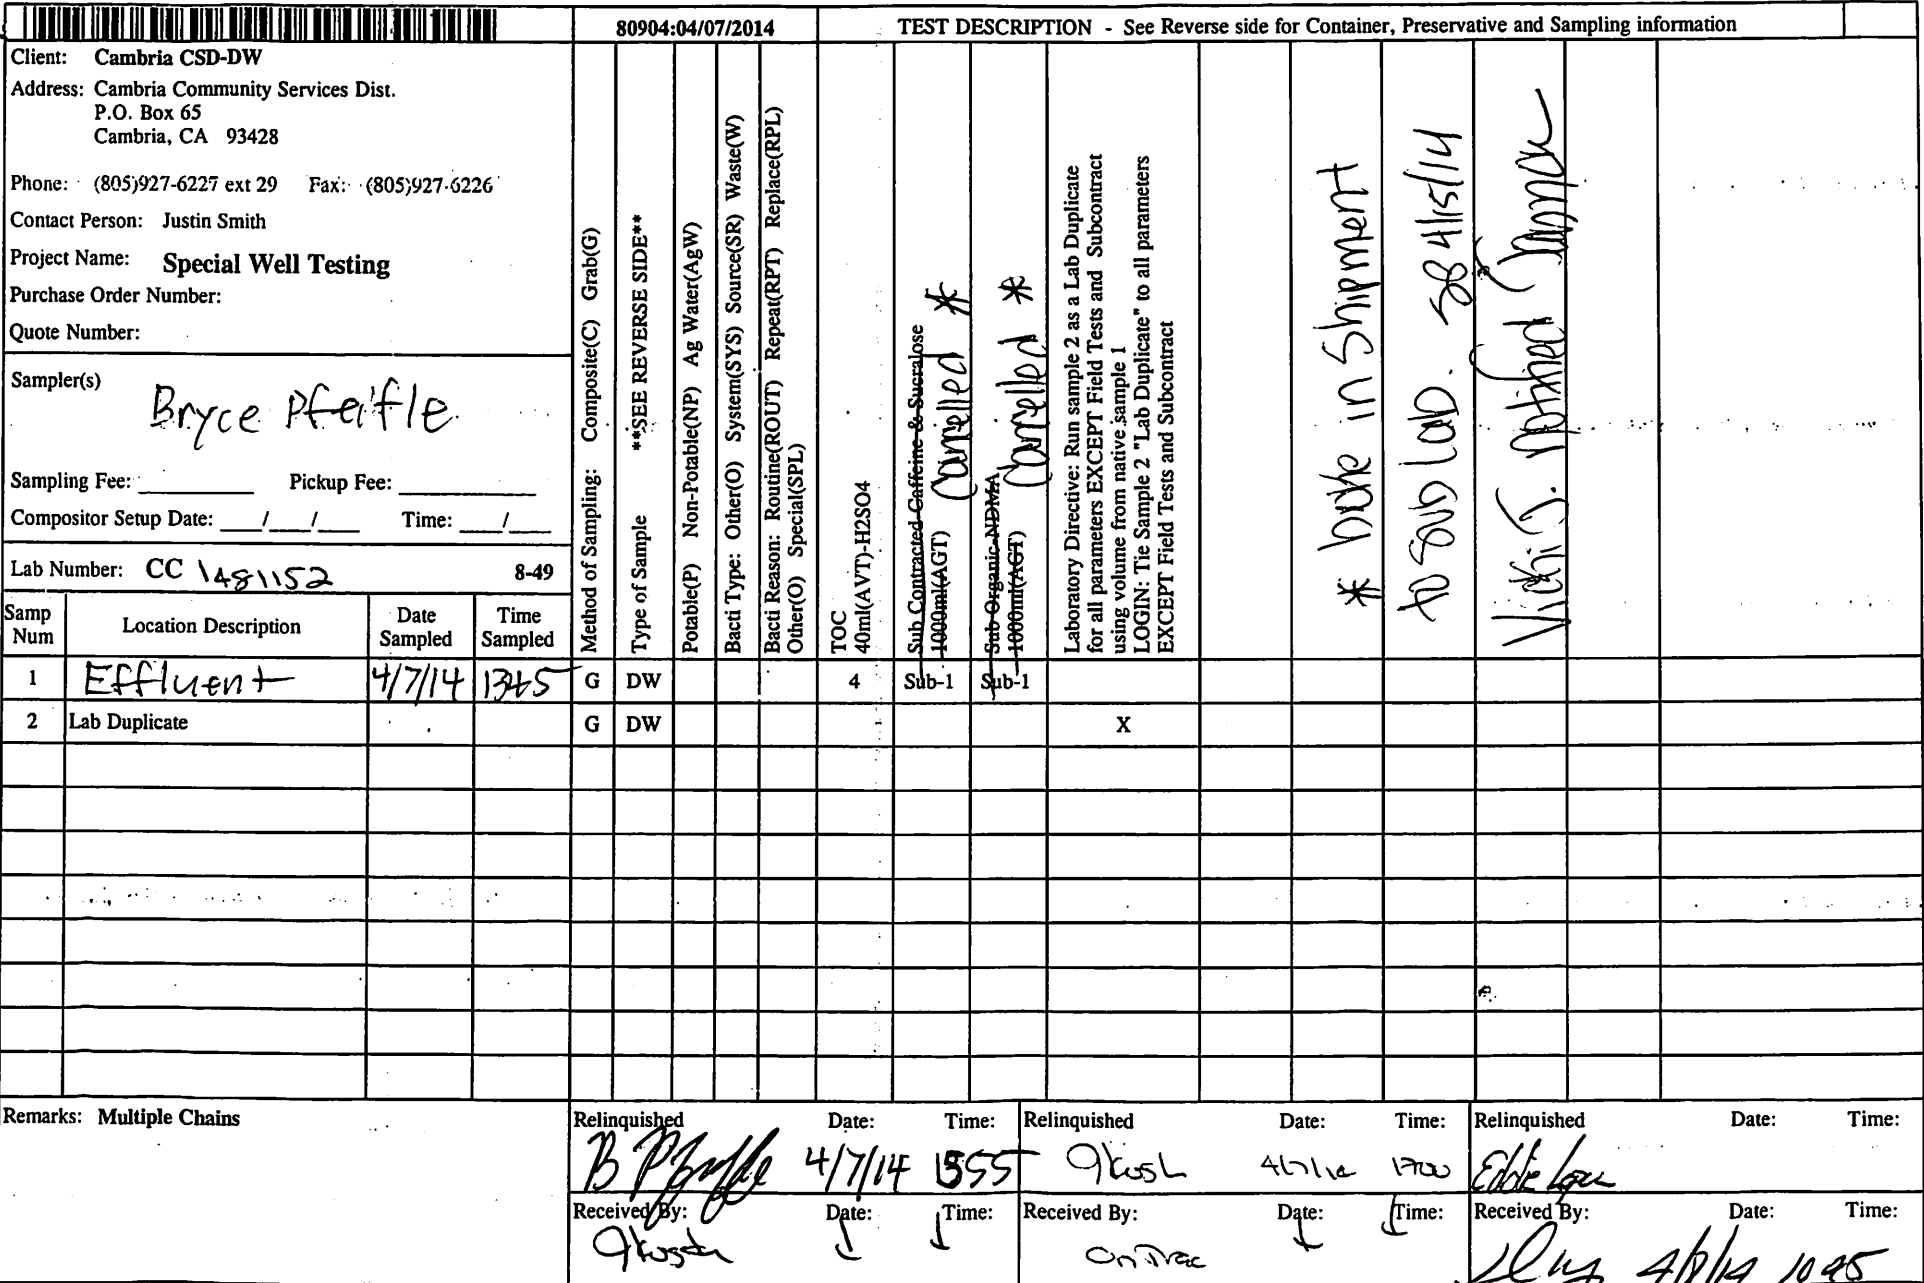 80904:04/07/2014
TEST DESCRIPTION - See Reverse side for Container, Preservative and Sampling information
Client: Cambria CSD-DW
Address: Cambria Community Services Dist.
P.O. Box 65
Cambria, CA 93428
Phone: (805)927-6227 ext 29 Fax: (805)927-6226
Contact Person: Justin Smith
Project Name: Special Well Testing
Purchase Order Number:
Quote Number:
Sampler(s)
Bryce Pfeifle
Sampling Fee: Pickup Fee:
Compositor Setup Date: __/__/__ Time: __/__
Lab Number: CC 1481152 8-49
Samp Num
Location Description
Date Sampled
Time Sampled
Method of Sampling: Composite(C) Grab(G)
Type of Sample **SEE REVERSE SIDE**
Potable(P) Non-Potable(NP) Ag Water(AgW)
Bacti Type: Other(O) System(SYS) Source(SR) Waste(W)
Bacti Reason: Routine(ROUT) Repeat(RPT) Replace(RPL)
Other(O) Special(SPL)
TOC
40ml(AVT)-H2SO4
Sub Contracted-Caffeine & Sucralose
1000ml(AGT) Cancelled *
Sub Organic-NDMA
1000ml(AGT) Cancelled *
Laboratory Directive: Run sample 2 as a Lab Duplicate
for all parameters EXCEPT Field Tests and Subcontract
using volume from native sample 1
LOGIN: Tie Sample 2 "Lab Duplicate" to all parameters
EXCEPT Field Tests and Subcontract
* broke in shipment
to sub lab. 4/15/14
Vicki J. notified
1 Effluent 4/7/14 1345 G DW 4 Sub-1 Sub-1
2 Lab Duplicate G DW X
Remarks: Multiple Chains
Relinquished Date: Time:
B Pfeifle 4/7/14 1355
Received By: Date: Time:
Relinquished Date: Time:
4/7/14 1700
Received By: Date: Time:
OnTrac
Relinquished Date: Time:
Eddie
Received By: Date: Time:
4/8/14